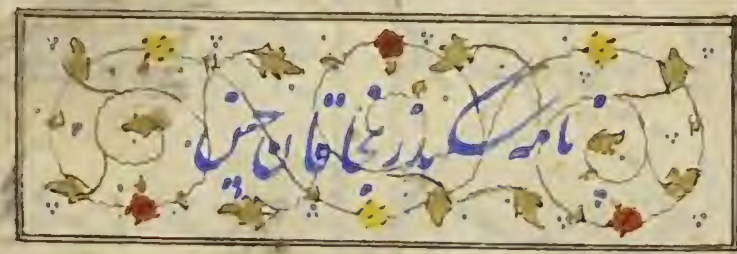 نامه سکندر بخاقان چین